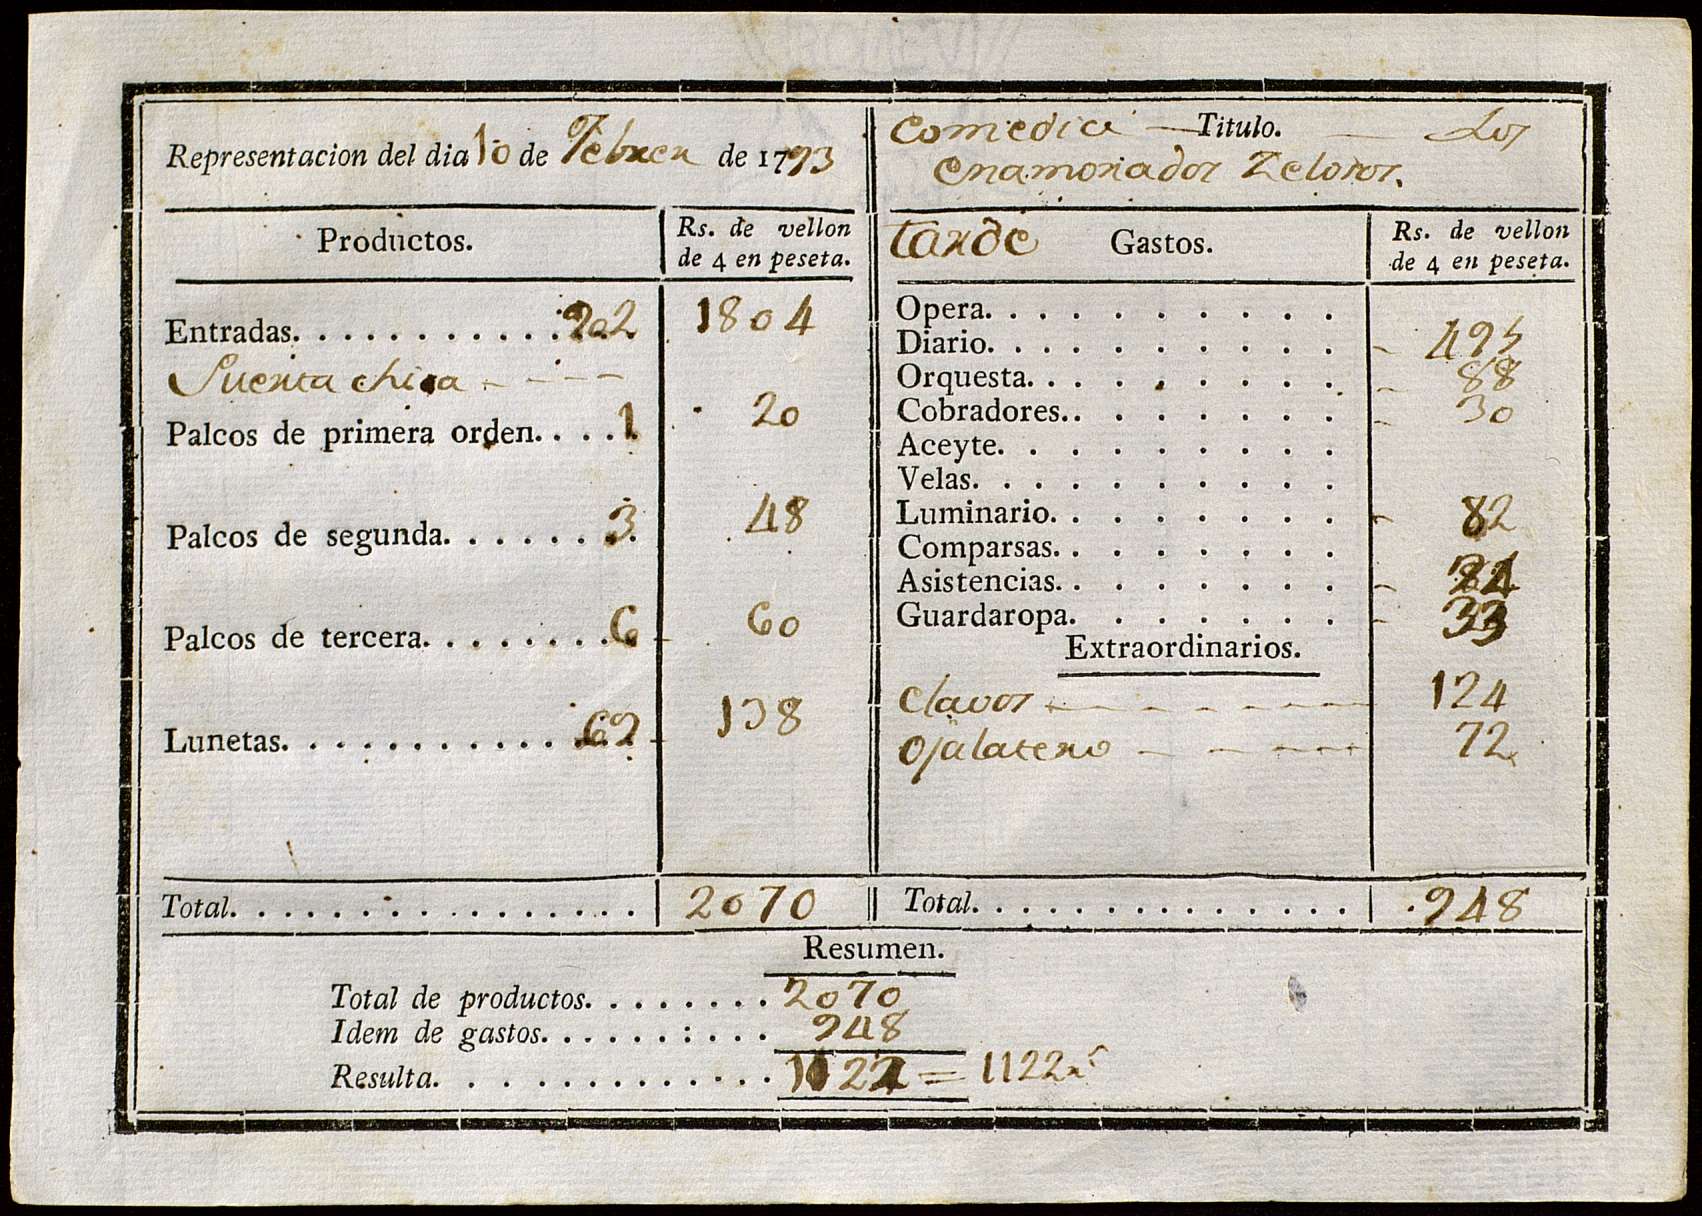 Representacion del dia 10 de Febrero de 1793
Comedia — Titulo. — Los
enamorados Zelosos.
Productos.
Rs. de vellon
de 4 en peseta.
Entradas. . . . . . . . . . . 902 1804
Puerta chica - - - -
Palcos de primera orden. . . . . 1 20
Palcos de segunda. . . . . . . . 3 48
Palcos de tercera. . . . . . . . 6 60
Lunetas. . . . . . . . . . . . . 69 138
Total. . . . . . . . . . . . . . . . 2070
tarde Gastos.
Rs. de vellon
de 4 en peseta.
Opera. . . . . . . . . .
Diario. . . . . . . . . . 495
Orquesta. . . . . . . . . 88
Cobradores. . . . . . . . 30
Aceyte. . . . . . . . . .
Velas. . . . . . . . . . .
Luminario. . . . . . . . 82
Comparsas. . . . . . . .
Asistencias. . . . . . . . 24
Guardaropa. . . . . . . . 33
Extraordinarios.
Clavos - - - - - - - 124
Ojalatero - - - - - 72
Total. . . . . . . . . . . . . . . 948
Resumen.
Total de productos. . . . . . . . 2070
Idem de gastos. . . . . . : . . . 948
Resulta. . . . . . . . . . . . . 1122 = 1122 rs